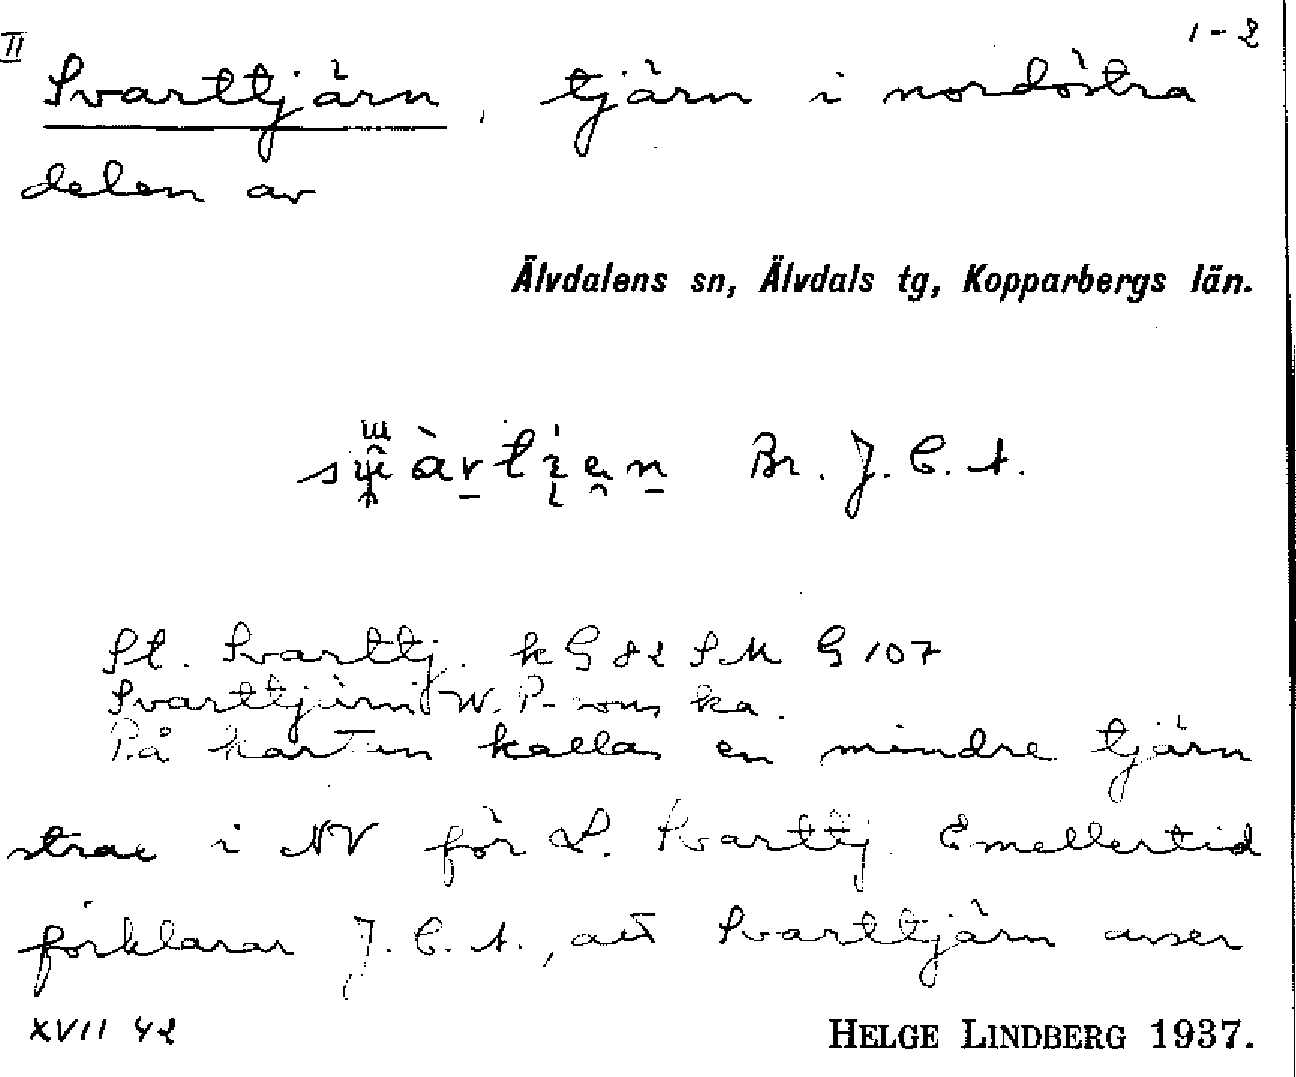 II 1-2
Svarttjärn, tjärn i nordöstra
delen av
Älvdalens sn, Älvdals tg, Kopparbergs län.
Br. J. E. A.
St. Svarttj. k G 82 SM G 107
Svarttjärn W. P-sons ka.
På kartan kallas en mindre tjärn
strax i NV för L. Svarttj. Emellertid
förklarar J. E. A., att Svarttjärn avser
XVII 42 HELGE LINDBERG 1937.